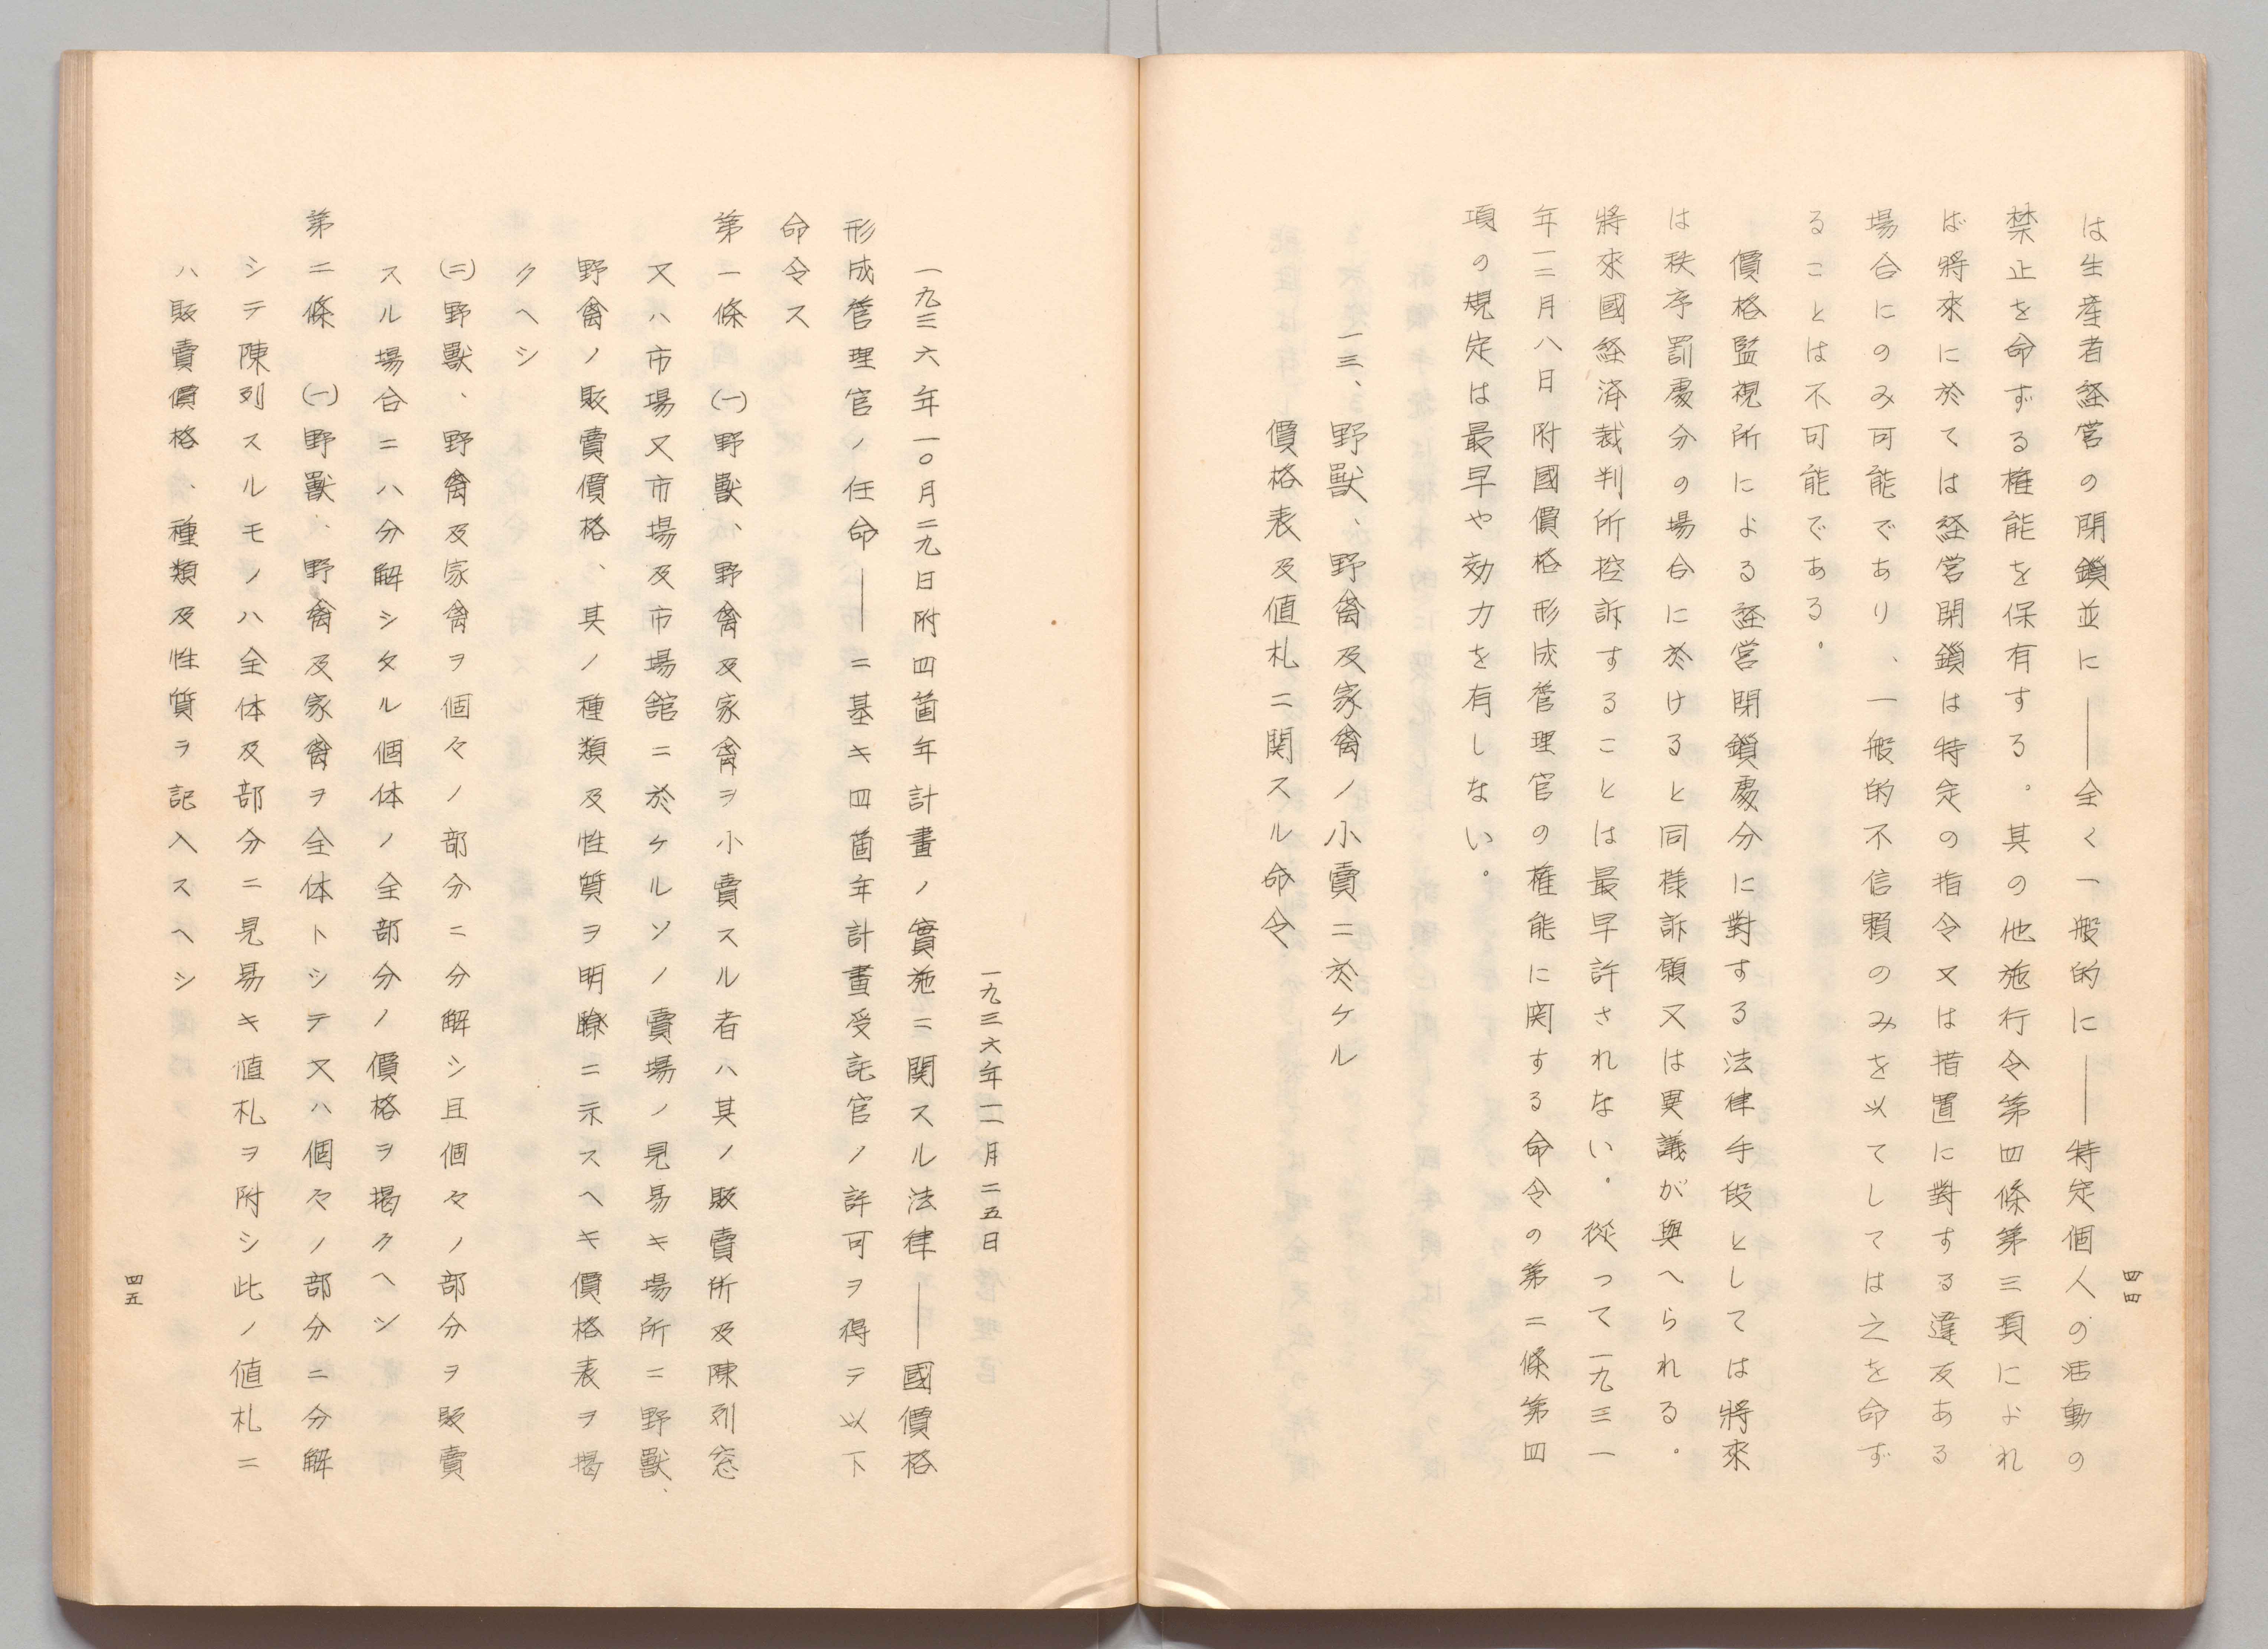 は生産者経営の閉鎖並に――全く一般的に――特定個人の活動の
禁止を命ずる権能を保有する。其の他施行令第四條第三項によれ
ば將來に於ては経営閉鎖は特定の指令又は措置に對する違反ある
場合にのみ可能であり、一般的不信頼のみを以てしては之を命ず
ることは不可能である。
價格監視所による経営閉鎖處分に對する法律手段としては將來
は秩序罰處分の場合に於けると同様訴願又は異議が與へられる。
將來國経済裁判所控訴することは最早許されない。從つて一九三一
年一二月八日附國價格形成管理官の権能に関する命令の第二條第四
項の規定は最早や効力を有しない。
一三、野獸、野禽及家禽ノ小賣ニ於ケル
價格表及値札ニ関スル命令、
四四
一九三六年一一月二五日
一九三六年一〇月二九日附四箇年計畫ノ實施ニ関スル法律――國價格
形成管理官ノ任命――ニ基キ四箇年計畫受託官ノ許可ヲ得テ以下
命令ス
第一條　㈠野獸、野禽及家禽ヲ小賣スル者ハ其ノ販賣所及陳列窓
又ハ市場又市場及市場舘ニ於ケルソノ賣場ノ見易キ場所ニ野獸、
野禽ノ販賣價格、其ノ種類及性質ヲ明瞭ニ示スヘキ價格表ヲ掲
クヘシ
㈡野獸、野禽及家禽ヲ個々ノ部分ニ分解シ且個々ノ部分ヲ販賣
スル場合ニハ分解シタル個体ノ全部分ノ價格ヲ掲クヘシ
第二條　㈠野獸、野禽及家禽ヲ全体トシテ又ハ個々ノ部分ニ分解
シテ陳列スルモノハ全体及部分ニ見易キ値札ヲ附シ此ノ値札ニ
ハ販賣價格、種類及性質ヲ記入スヘシ
四五